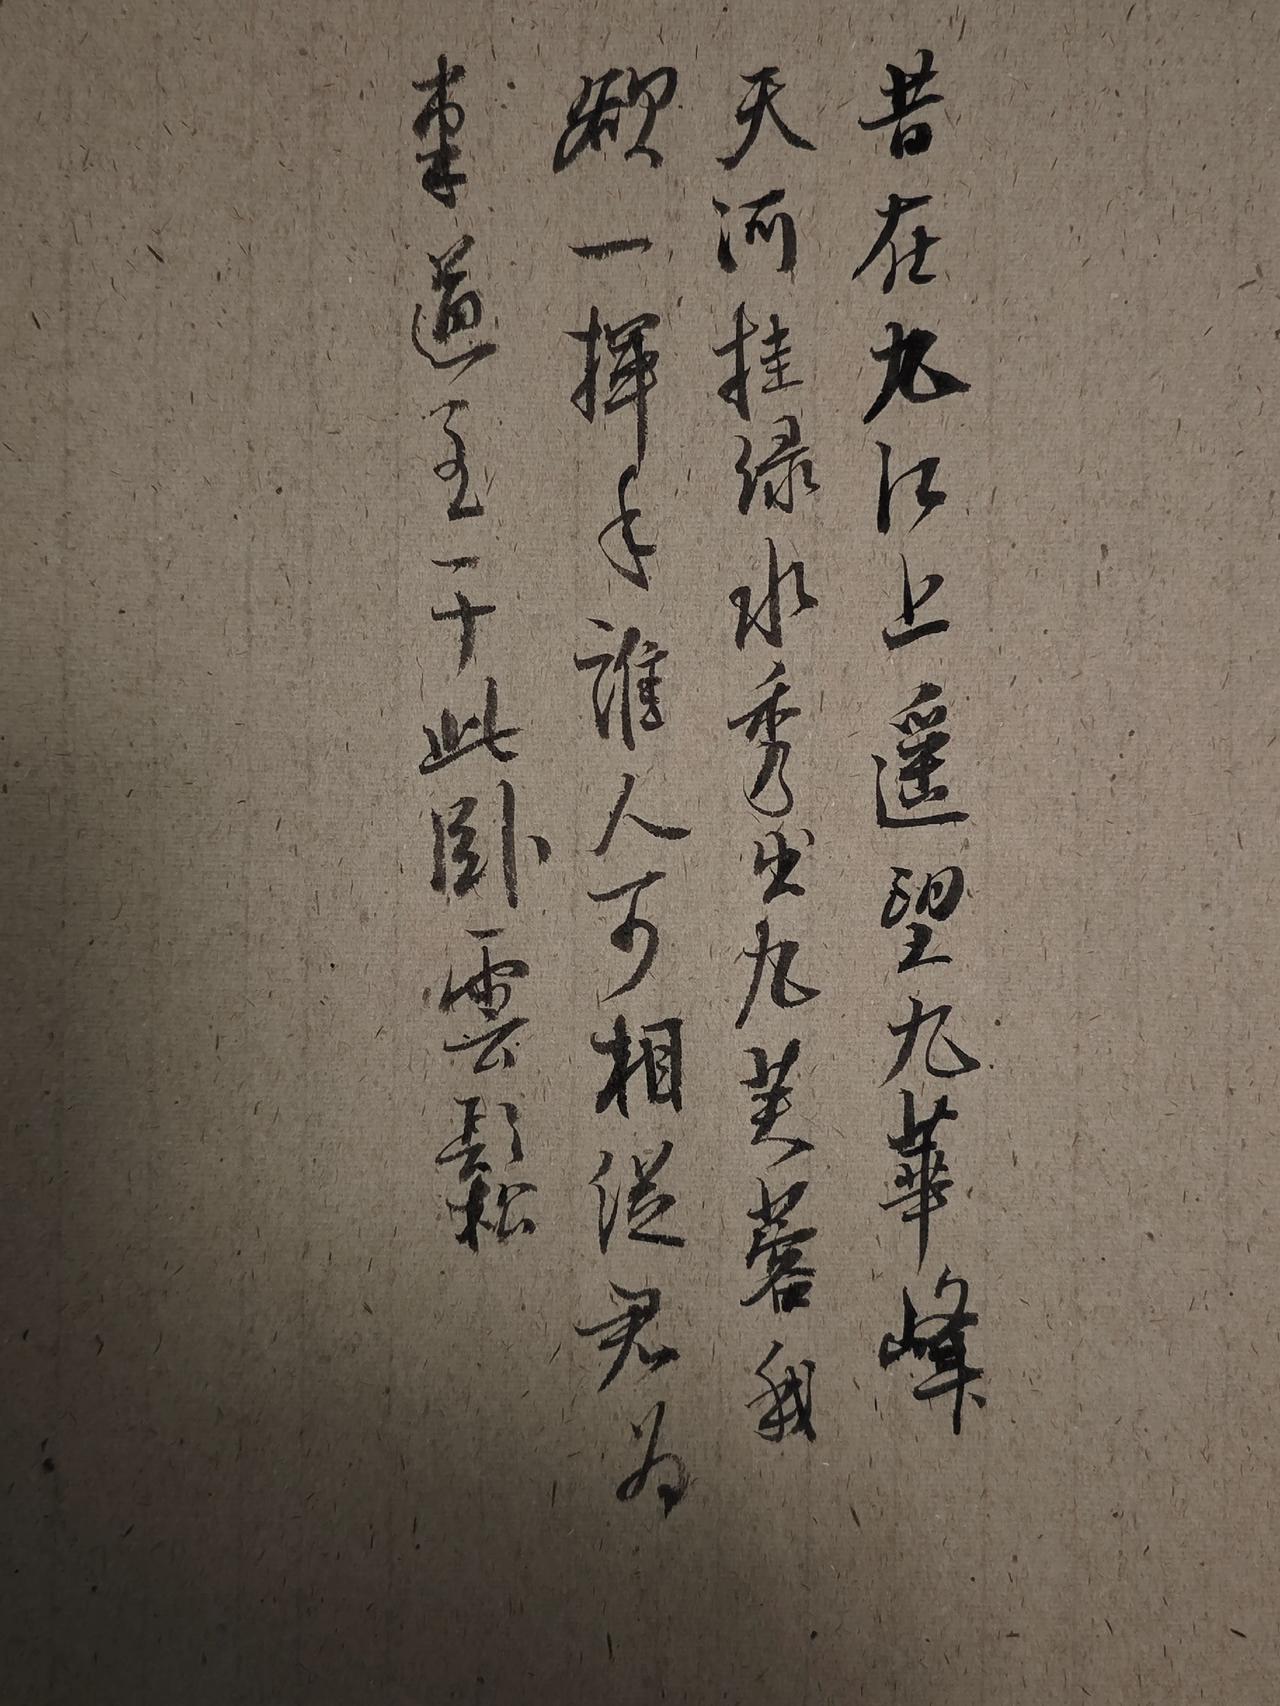 昔在九江上遥望九華峰
天河挂绿水秀出九芙蓉我
欲一揮手誰人可相從君為
東道主于此卧雲鬆